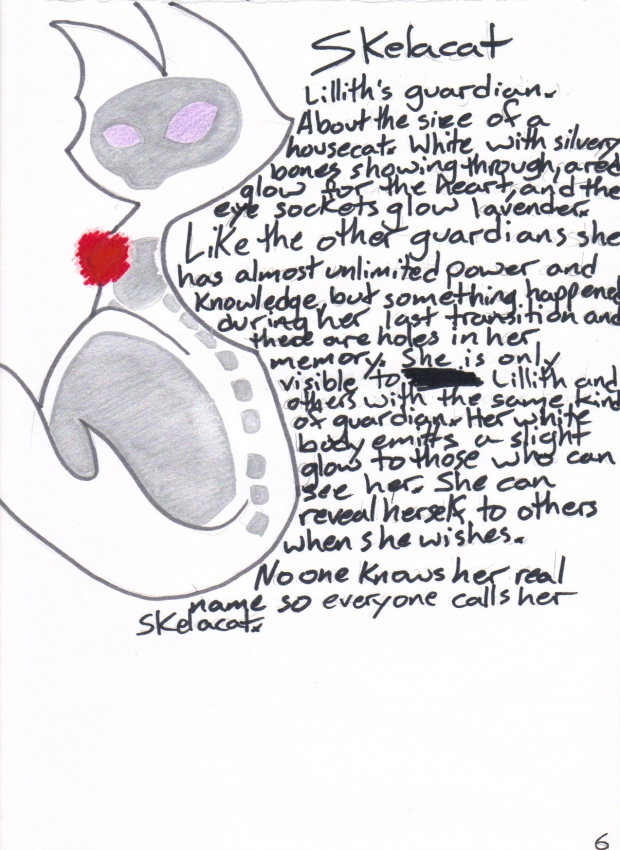 Skelacat
Lillith's guardian.
About the size of a
housecat. White with silvery
bones showing through, a red
glow for the heart, and the
eye sockets glow lavender.
Like the other guardians she
has almost unlimited power and
knowledge, but something happened
during her last transition and
there are holes in her
memory. She is only
visible to Lillith and
others with the same kind
of guardian. Her white
body emitts a slight
glow to those who can
see her. She can
reveal herself to others
when she wishes.
No one knows her real
name so everyone calls her
Skelacat.
6